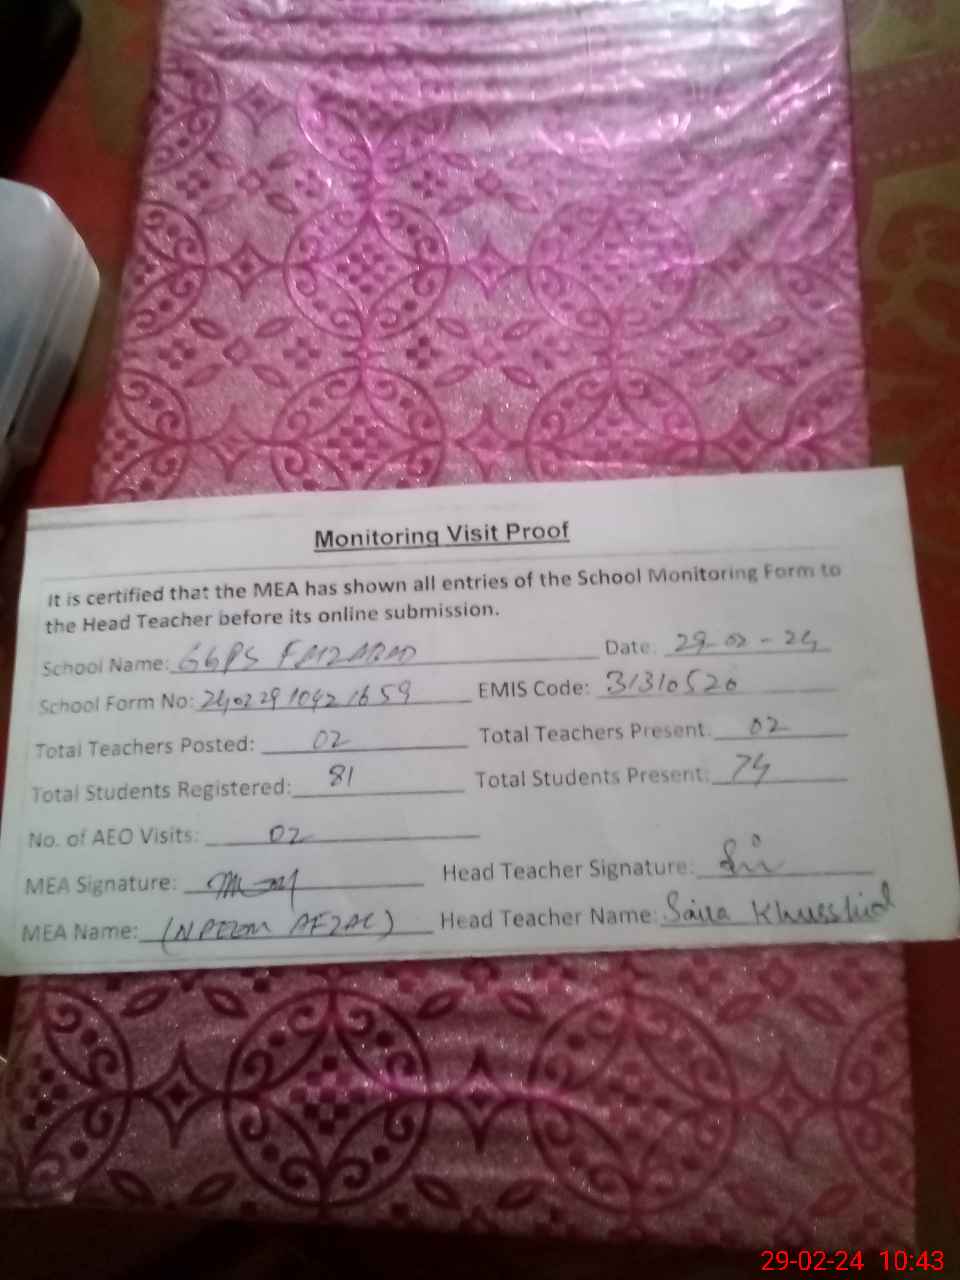 Monitoring Visit Proof
It is certified that the MEA has shown all entries of the School Monitoring Form to
the Head Teacher before its online submission.
School Name: GGPS FAIZABAD Date: 29-02-24
School Form No: 24022910421659 EMIS Code: 31310520
Total Teachers Posted: 02 Total Teachers Present: 02
Total Students Registered: 81 Total Students Present: 74
No. of AEO Visits: 02
MEA Signature: Head Teacher Signature:
MEA Name: AFZAL) Head Teacher Name: Saira Khurshid
29-02-24 10:43